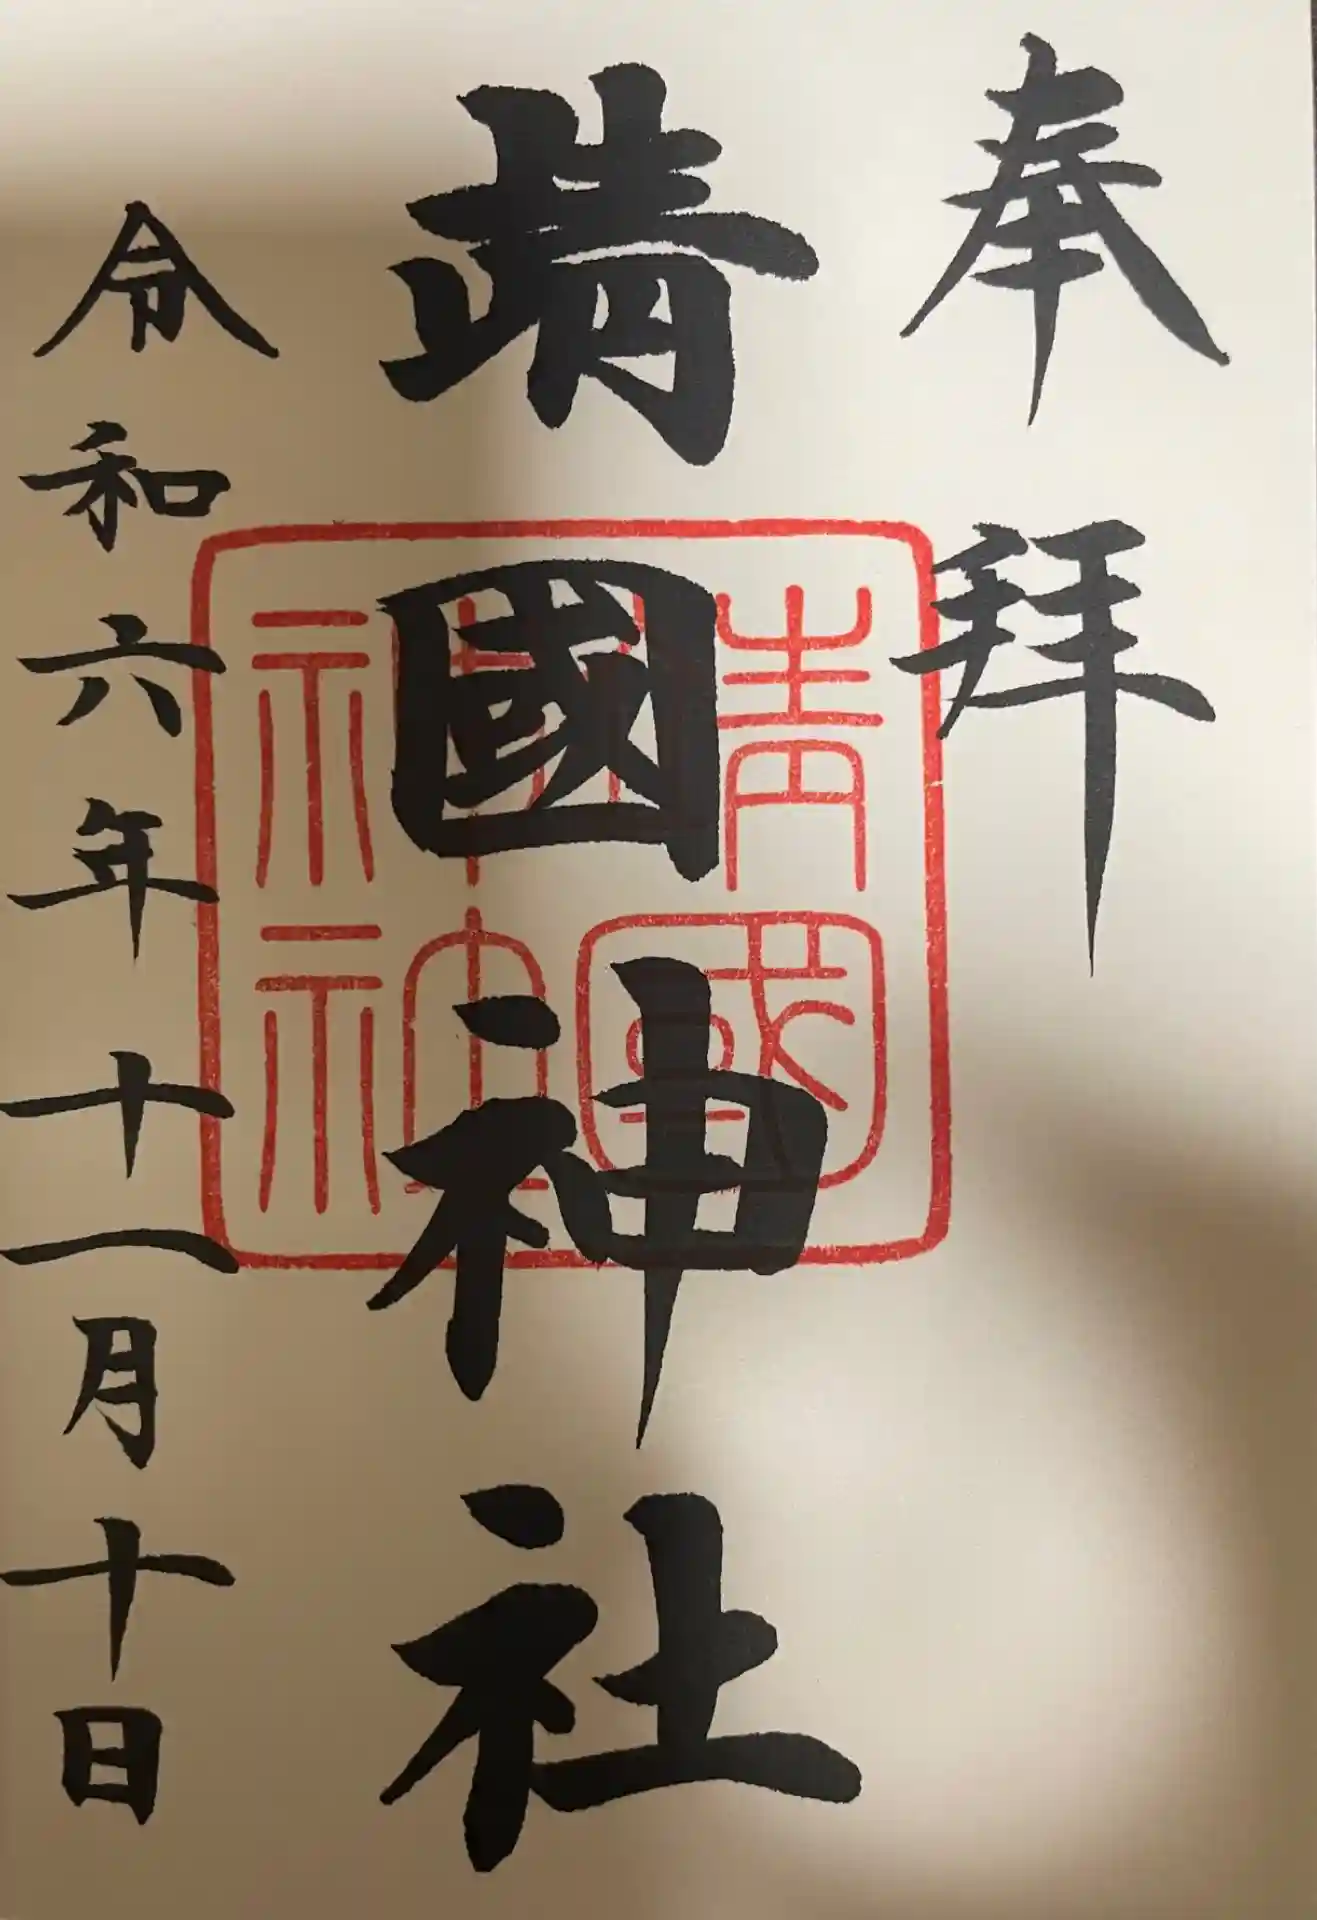 奉拝
靖國神社
令和六年十一月十日
靖國
神社